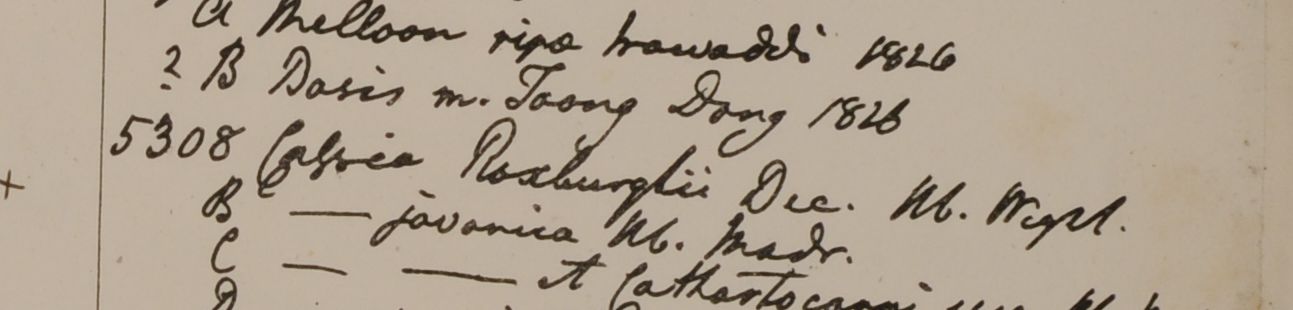 a Melloon ripa Irawaddi 1826
? B Basis m. Taong Dong 1826
5308 Cassia Roxburghii Dec. Hb. Wight.
B — javanica Hb. Madr.
C — — et Cathartocarpi